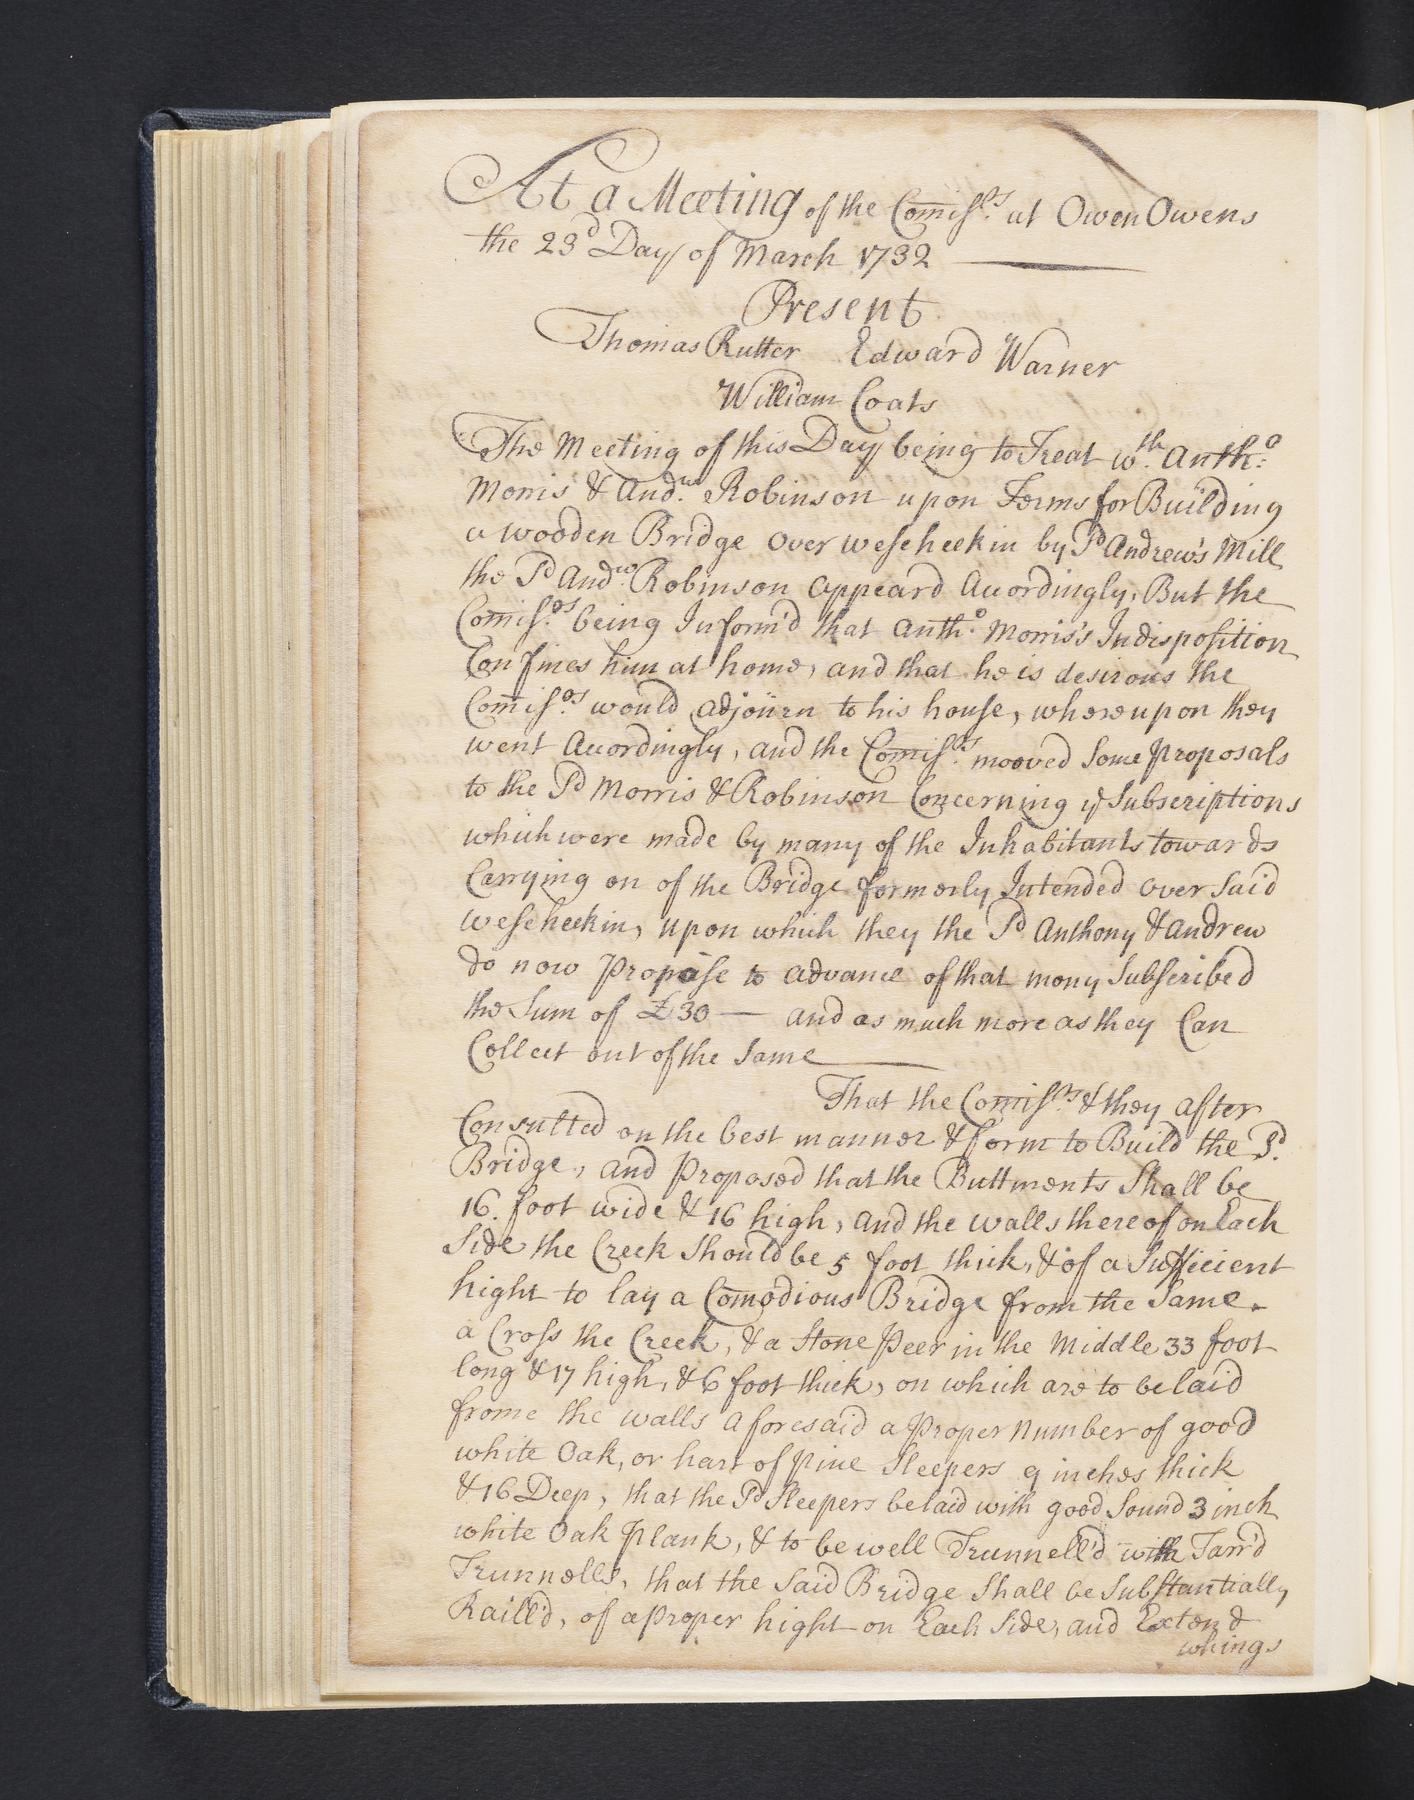 At a Meeting of the Comiss.rs at Owen Owens
the 23d Day of March 1732
Present
Thomas Rutter Edward Warner
William Coats
The Meeting of this Day being to Treat wth. Antho:
Morris & Andw. Robinson upon Terms for Building
a wooden Bridge over weseheekin by Sd Andrew's Mill
the Sd Andw. Robinson appeard Accordingly, But the
Comiss.rs being Inform'd that Antho. Morris's Indisposition
Confines him at home, and that he is desirous the
Comiss.rs would adjourn to his house, whereupon they
went Accordingly, and the Comiss.rs mooved Some proposals
to the Sd Morris & Robinson Concerning ye Subscriptions
which were made by many of the Inhabitants towards
Carrying on of the Bridge formerly Intended over Said
weseheekin, upon which they the Sd Anthony & Andrew
do now Propose to advance of that mony Subscribed
the Sum of £30 — and as much more as they Can
Collect out of the Same
That the Comiss.rs & they after
Consulted on the best manner & form to Build the Sd.
Bridge, and proposed that the Buttments Shall be
16. foot wide & 16 high, and the walls thereof on Each
Side the Creek Should be 5 foot thick, & of a Sufficient
hight to lay a Comodious Bridge from the Same
a Cross the Creek, & a Stone Peer in the Middle 33 foot
long & 17 high, & 6 foot thick, on which are to be laid
frome the walls aforesaid a proper number of good
white Oak, or hart of pine Sleepers 9 inches thick
& 16 Deep, that the Sd Sleepers be laid with good Sound 3 inch
white Oak plank, & to be well Trunnell'd with Tarr'd
Trunnells, that the Said Bridge Shall be Substantially
Raill'd, of a proper hight on Each Side, and Extend
whings